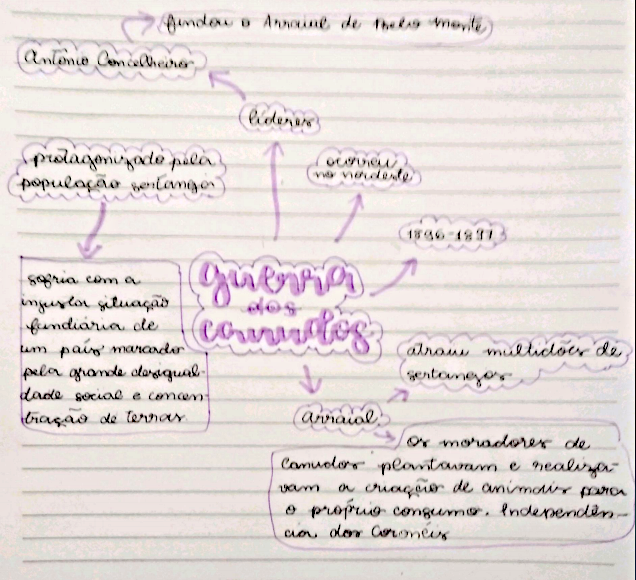 fundou o Arraial de Belo Monte
Antônio Concelheiro
líderes
protagonizado pela
população sertaneja
ocorreu
no nordeste
1896-1897
guerra
dos
canudos
sofria com a
injusta situação
fundiária de
um país marcado
pela grande desigual-
dade social e concen-
tração de terras
atraiu multidões de
sertanejos
arraial
os moradores de
canudos plantavam e realiza-
vam a criação de animais para
o próprio consumo. Independên-
cia dos coronéis